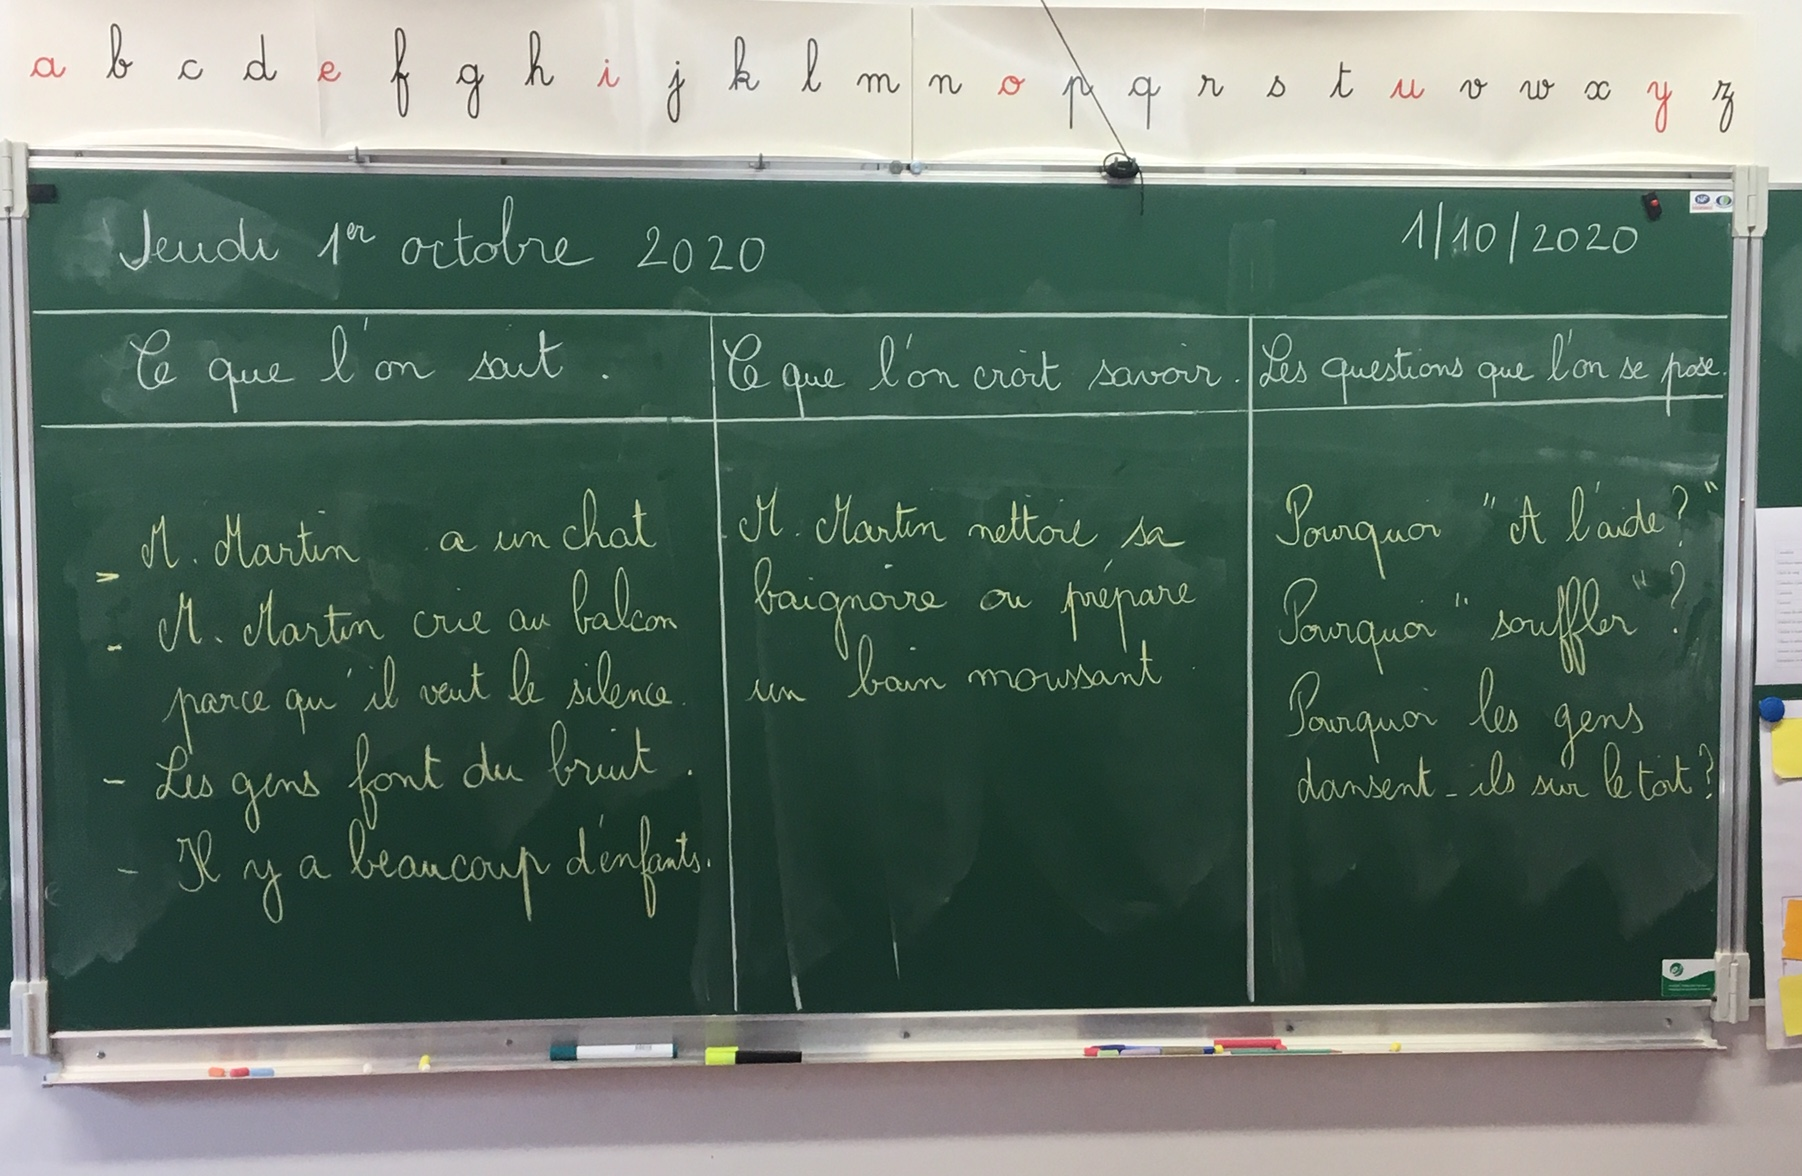 a b c d e f g h i j k l m n o p q r s t u v w x y z
Jeudi 1er octobre 2020
1/10/2020
Ce que l'on sait.
Ce que l'on croit savoir.
Les questions que l'on se pose.
- M. Martin a un chat
- M. Martin crie au balcon
parce qu'il veut le silence.
- Les gens font du bruit.
- Il y a beaucoup d'enfants.
M. Martin nettoie sa
baignoire ou prépare
un bain moussant
Pourquoi "A l'aide?"
Pourquoi "souffler"?
Pourquoi les gens
dansent-ils sur le toit?
NF